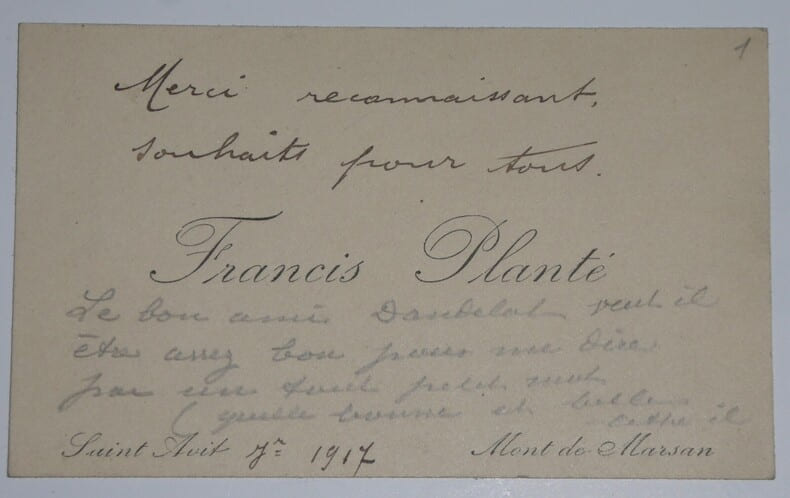 1
Merci reconnaissant,
souhaits pour tous.
Francis Planté
Le bon ami Dandelot veut il
être assez bon pour me dire
par un tout petit mot
(quelle bonne et belle
il
Saint Avit Jr 1917 Mont de Marsan